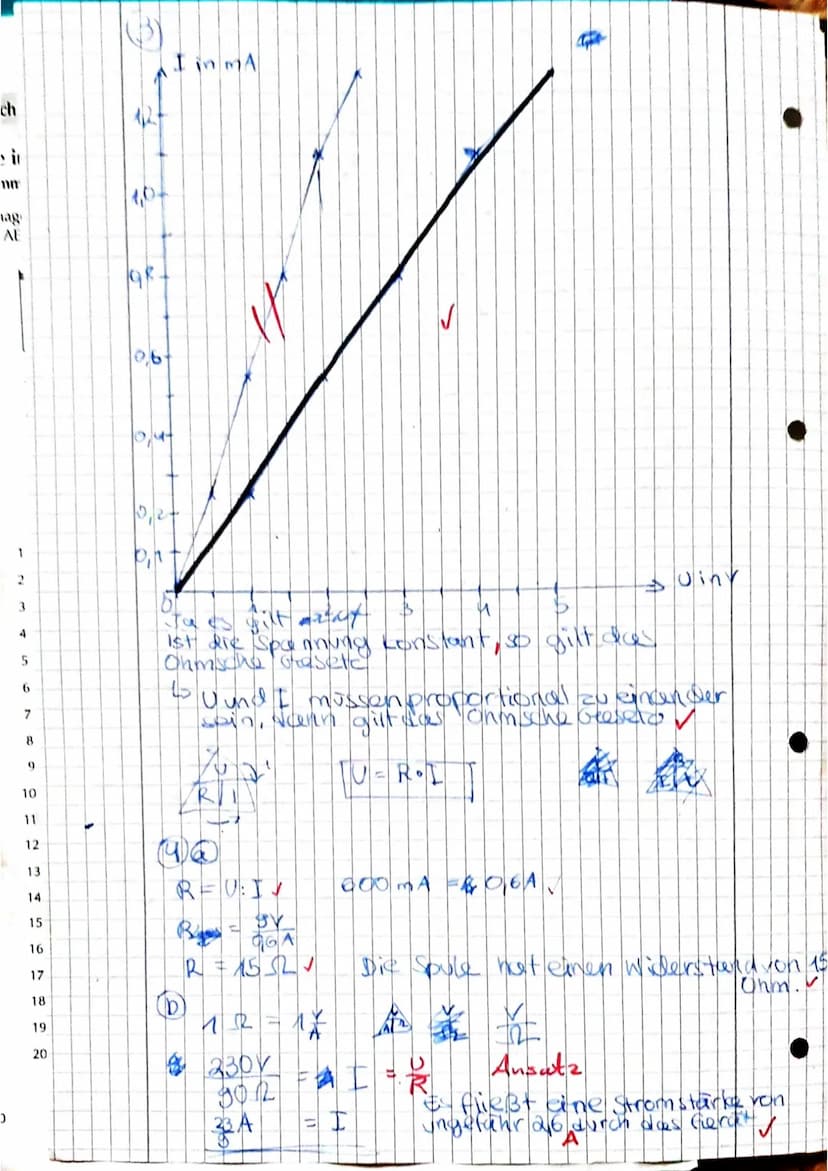 ch
③
I in mA
1,2
1,0
0,8
0,6
0,4
0,2
0,1
0
3
4
5
U in V
Ja es gilt
Ist die Spannung konstant, so gilt das
Ohmsche Gesetz
↳ U und I müssen proportional zu einander
sein, dann gilt das Ohmsche Gesetz ✓
U
R | I
[U = R • I]
④ ⓐ
R = U : I ✓ 600 mA = 0,6 A ✓
R = 9V / 0,6 A
R = 15 Ω ✓ Die Spule hat einen Widerstand von 15
Ohm. ✓
ⓑ
1 Ω = 1 V/A V/Ω
230V / 90Ω = I = U/R Ansatz
Es fließt eine Stromstärke von
23/9 A = I ungefähr 2,6 A durch das Gerät ✓
1
2
3
4
5
6
7
8
9
10
11
12
13
14
15
16
17
18
19
20